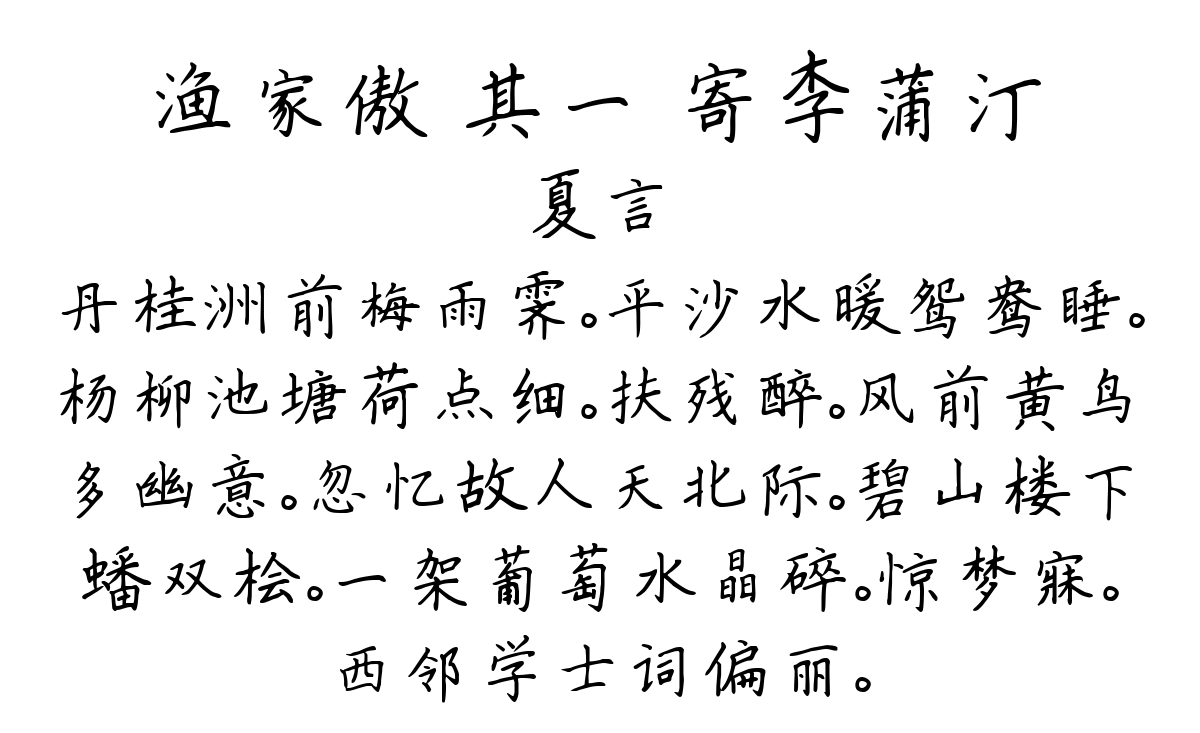 渔家傲 其一 寄李蒲汀
夏言
丹桂洲前梅雨霁。平沙水暖鸳鸯睡。
杨柳池塘荷点细。扶残醉。风前黄鸟
多幽意。忽忆故人天北际。碧山楼下
蟠双桧。一架葡萄水晶碎。惊梦寐。
西邻学士词偏丽。